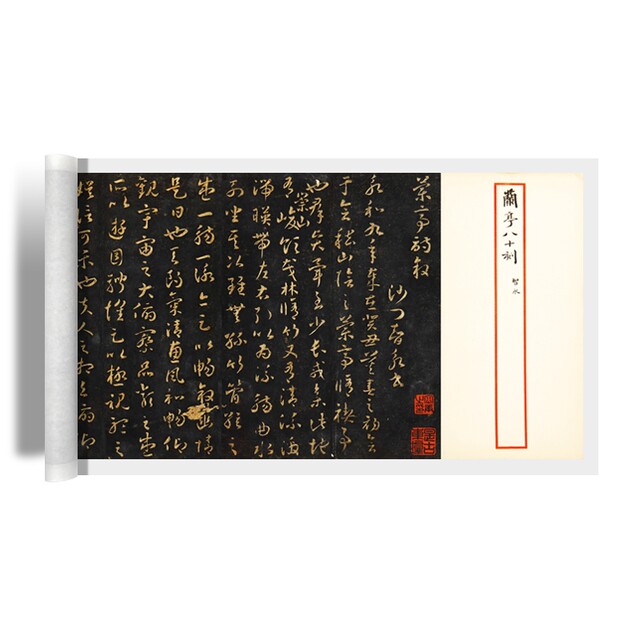 蘭亭八十刻
智永
蘭亭詩叙
沙門智永書
永和九年歲在癸丑暮春之初會
于會稽山陰之蘭亭脩禊事
也羣賢畢至少長咸集此地
有崇山峻領茂林脩竹又有清流激
湍暎帶左右引以為流觴曲水
列坐其次雖無絲竹管弦之
盛一觴一詠亦足以暢叙幽情
是日也天朗氣清惠風和暢仰
觀宇宙之大俯察品類之盛
所以遊目騁懷足以極視聽之
娱信可樂也夫人之相與俯仰